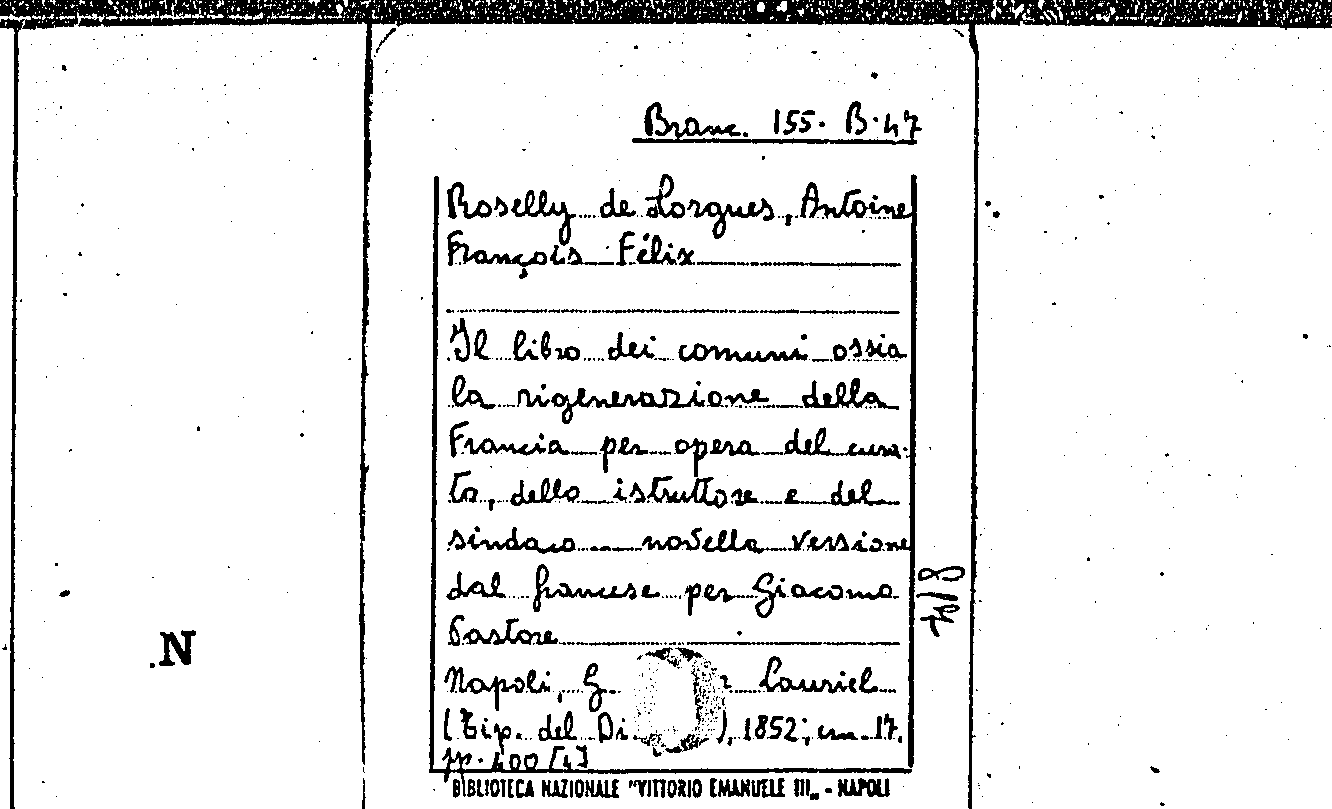 Branc. 155. B. 47
Roselly de Lorgues, Antoine
François Félix
Il libro dei comuni ossia
la rigenerazione della
Francia per opera del cura-
to, dello istruttore e del
sindaco ... novella versione
dal francese per Giacomo
Pastore
Napoli, G. Lauriel
(Tip. del Di ), 1852; cm. 17.
pp. 400 [4]
BIBLIOTECA NAZIONALE "VITTORIO EMANUELE III„ - NAPOLI
.N